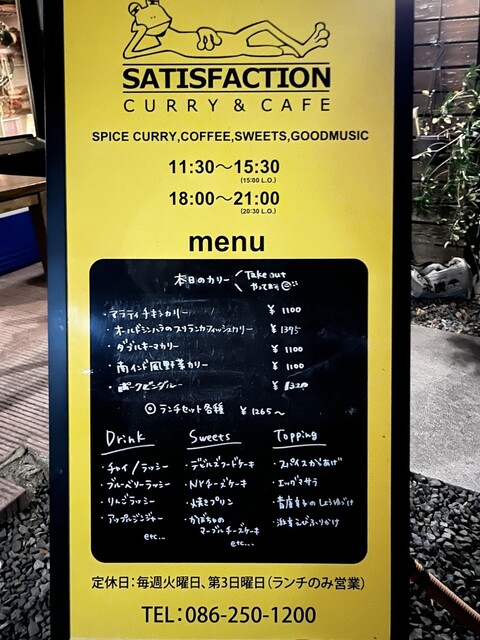 SATISFACTION
CURRY & CAFE
SPICE CURRY,COFFEE,SWEETS,GOODMUSIC
11:30～15:30
(15:00 L.O.)
18:00～21:00
(20:30 L.O.)
menu
本日のカリー
Take out
やってます
・マラティチキンカリー ¥1100
・オールドシンハラのスリランカフィッシュカリー ¥1375
・ダブルキーマカリー ¥1100
・南インド風野菜カリー ¥1100
・ポークビンダルー ¥1320
◎ランチセット各種 ¥1265～
Drink
・チャイ/ラッシー
・ブルーベリーラッシー
・りんごラッシー
・アップルジンジャー
etc...
Sweets
・デビルズフードケーキ
・NYチーズケーキ
・焼きプリン
・かぼちゃの
マーブルチーズケーキ
etc...
Topping
・スパイスからあげ
・エッグマサラ
・青唐辛子のしょうゆづけ
・激辛えびふりかけ
定休日：毎週火曜日、第3日曜日（ランチのみ営業）
TEL：086-250-1200